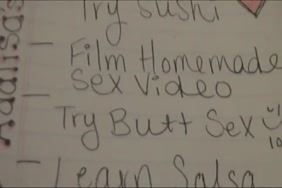 Try Sushi
Film Homemade
Sex Video
Try Butt Sex
Learn Salsa